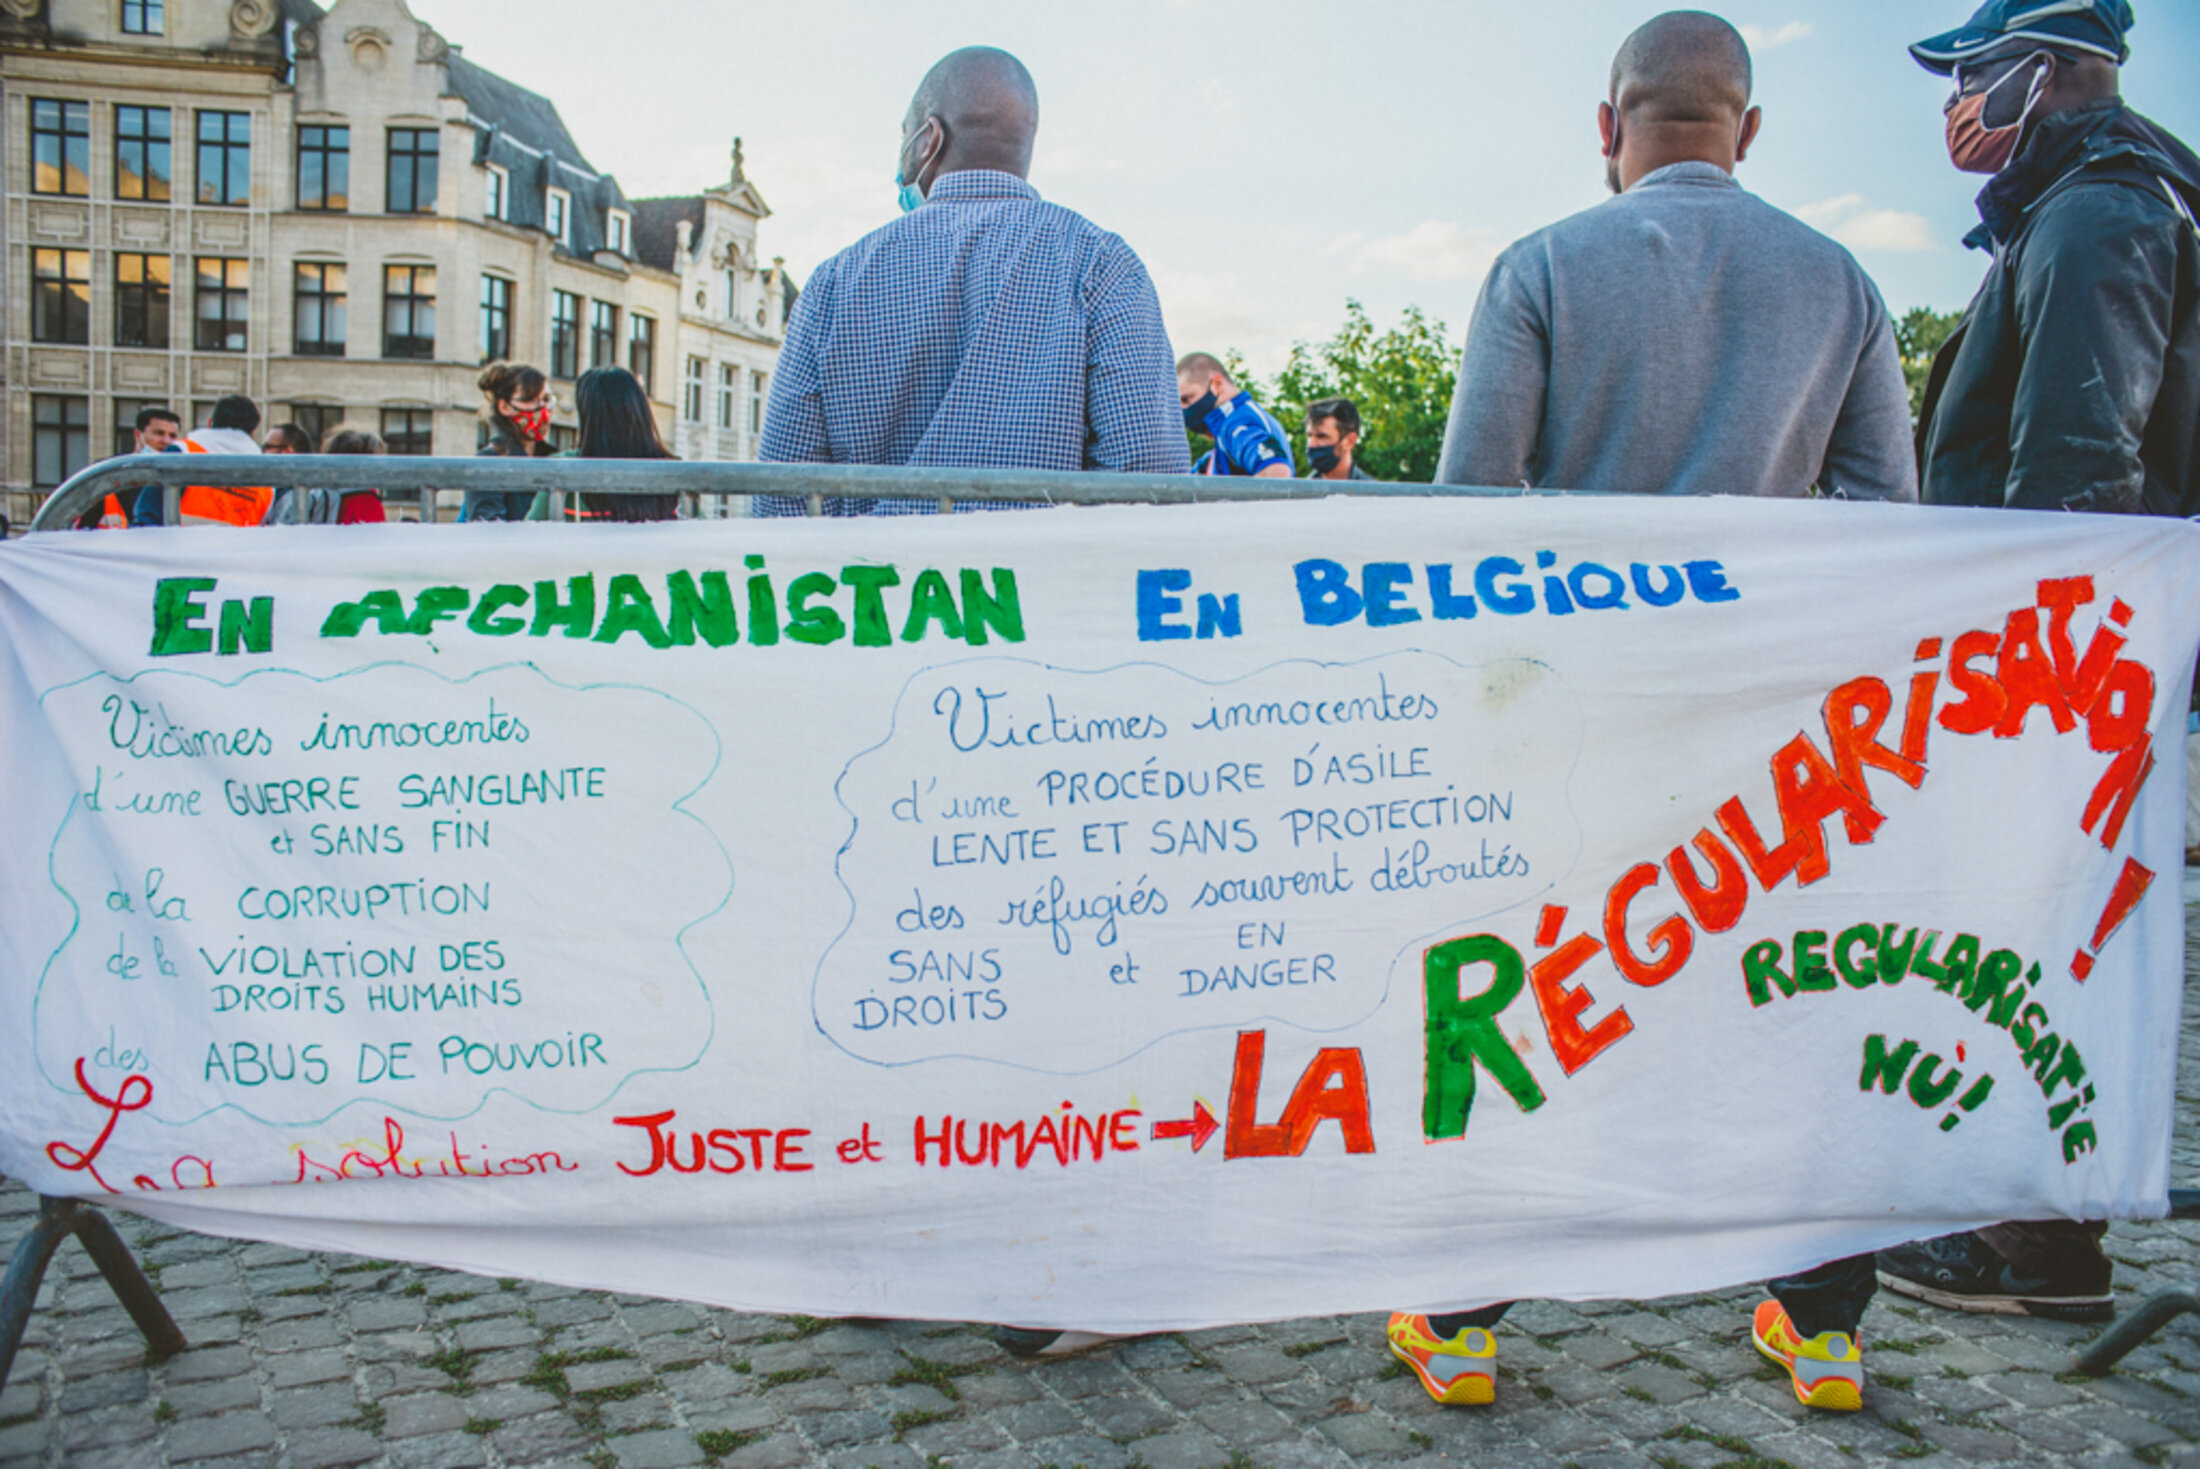 En AFGHANiSTAN
Victimes innocentes
d'une GUERRE SANGLANTE
et SANS FiN
de la CORRUPTiON
de la ViOLATiON DES
DROiTS HUMAiNS
des ABUS DE POUVOiR
En BELGiQUE
Victimes innocentes
d'une PROCÉDURE D'ASiLE
LENTE ET SANS PROTECTiON
des réfugiés souvent déboutés
SANS DROiTS et EN DANGER
La solution JUSTE et HUMAiNE → LA RÉGULARiSATiON!
REGULARiSATiE
NÚ!